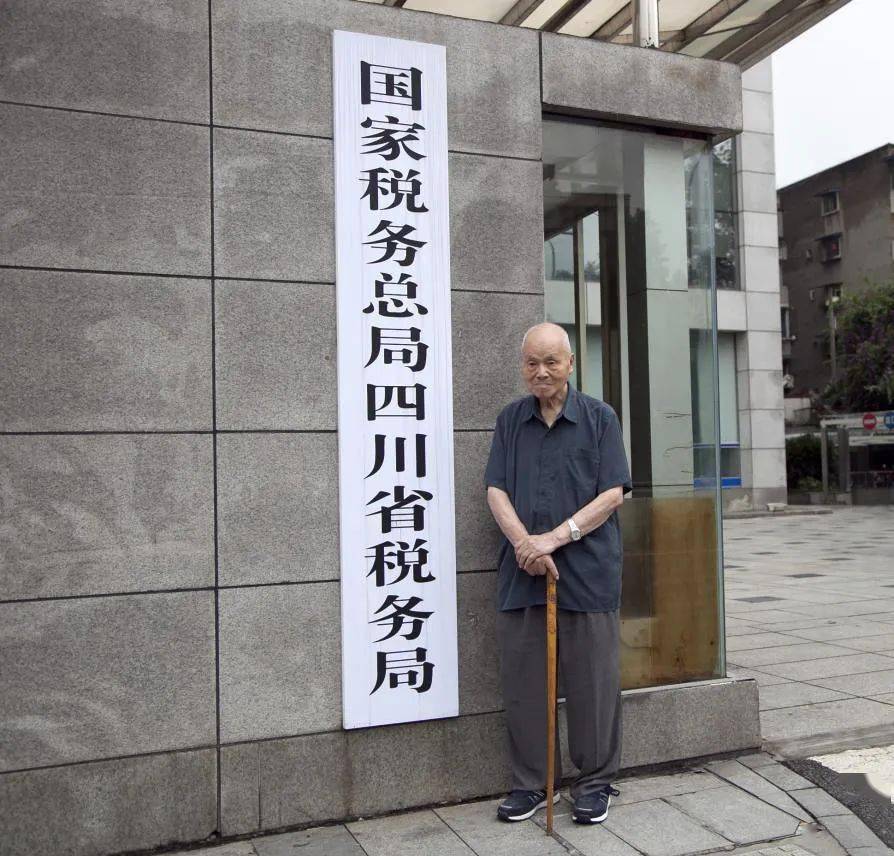 国家税务总局四川省税务局